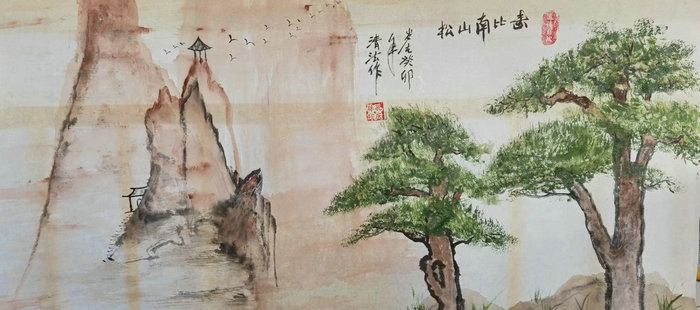 寿比南山松
岁在癸卯
年
清法作